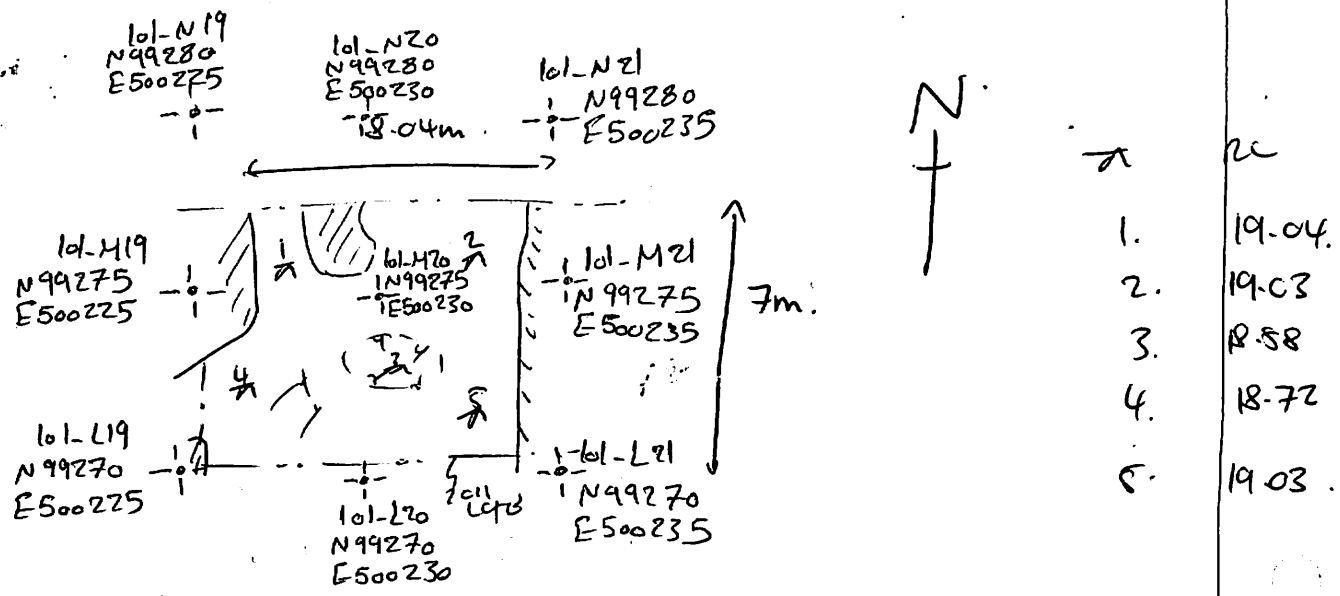 101-N19
N99280
E500225
101-N20
N99280
E500230
18.04m.
101-N21
N99280
E500235
N
101-M19
N99275
E500225
1
101-M20
N99275
E500230
2
101-M21
N99275
E500235
7m.
3
4
5
101-L19
N99270
E500225
101-L20
N99270
E500230
101-L21
N99270
E500235
1. 19.04.
2. 19.03
3. 18.58
4. 18.72
5. 19.03.